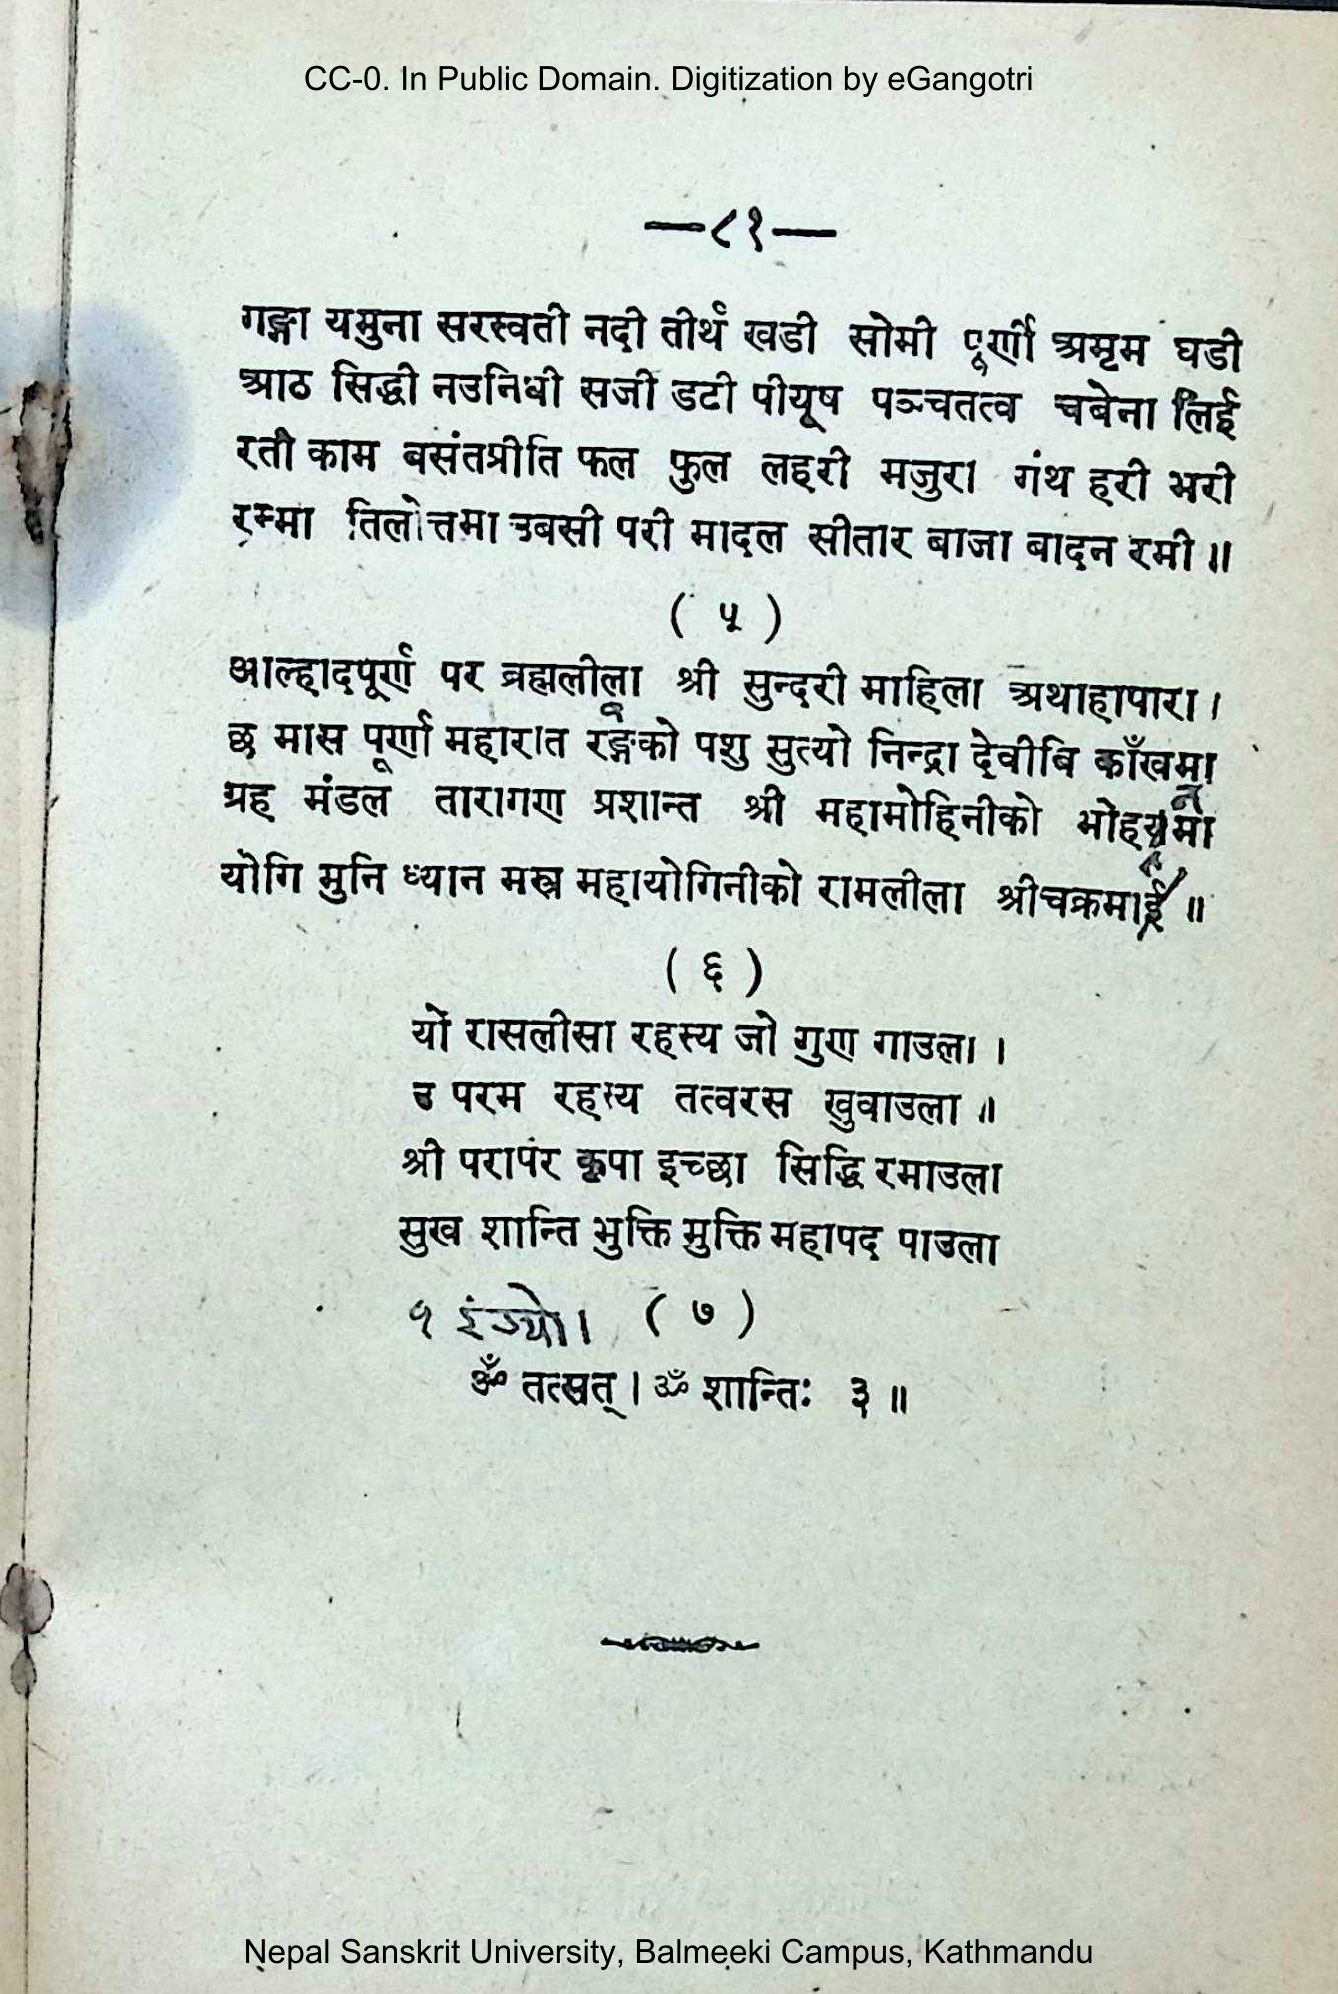 CC-0. In Public Domain. Digitization by eGangotri
—८१—
गङ्गा यमुना सरस्वती नदी तीर्थ खडी सोमी पूर्णी अमृम घडी
आठ सिद्धी नउनिधी सजी डटी पीयूष पञ्चतत्व चबेना लिई
रती काम बसंतप्रीति फल फुल लहरी मजुरा गंथ हरी भरी
रम्मा तिलोत्तमा उबसी परी मादल सीतार बाजा बादन रमी ॥
( ५ )
आल्हादपूर्ण पर ब्रह्मलीला श्री सुन्दरी माहिला अथाहापारा ।
छ मास पूर्णा महारात रङ्गको पशु सुत्यो निन्द्रा देवीबि काँखमा
ग्रह मंडल तारागण प्रशान्त श्री महामोहिनीको
योगि मुनि ध्यान मस्त्र महायोगिनीको रामलीला श्रीचक्रमाई ॥
( ६ )
यो रासलीसा रहस्य जो गुण गाउला ।
उ परम रहस्य तत्वरस खुवाउला ॥
श्री परापर कृपा इच्छा सिद्धि रमाउला
सुख शान्ति भुक्ति मुक्ति महापद पाउला
१ ( ७ )
ॐ तत्सत् । ॐ शान्तिः ३ ॥
Nepal Sanskrit University, Balmeeki Campus, Kathmandu